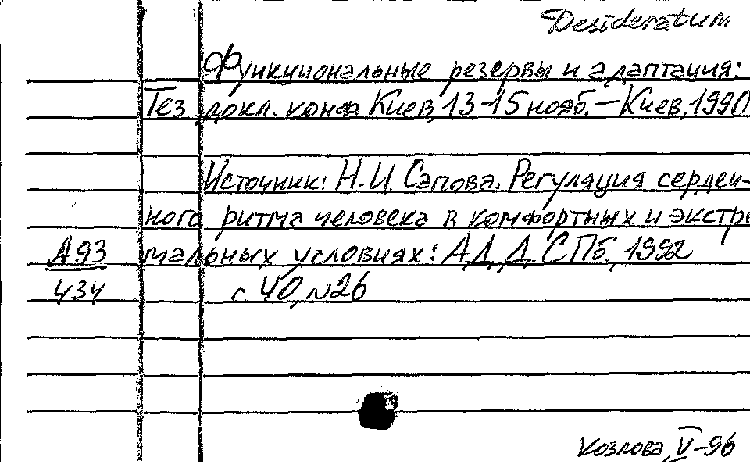 Desideratum
Функциональные резервы и адаптация:
Тез. докл. конф. Киев, 13-15 нояб. – Киев, 1990
Источник: Н.И. Сапова. Регуляция сердеч-
ного ритма человека в комфортных и экстре
А93 мальных условиях: А.Д.Д. СПб., 1992
434 с. 40, №26
Козлова, V-96